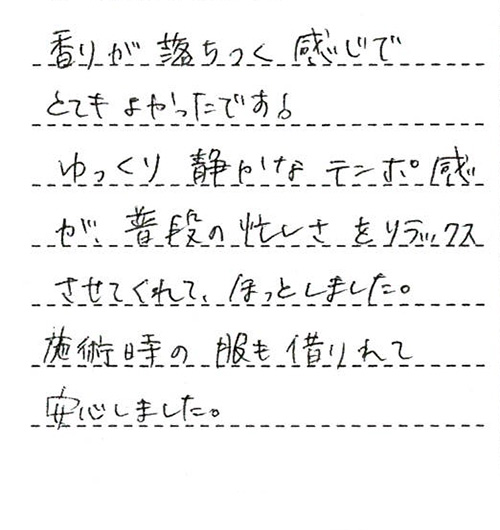 香りが落ちつく感じで
とてもよかったです。
ゆっくり静かなテンポ感
が、普段の忙しさをリラックス
させてくれて、ほっとしました。
施術時の服も借りれて
安心しました。